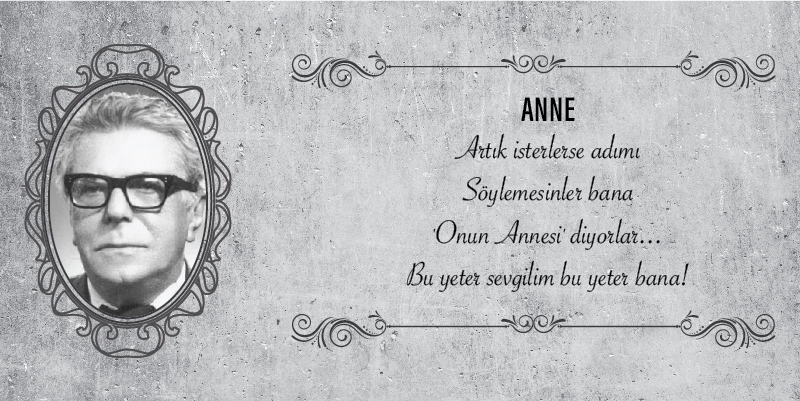 ANNE
Artık isterlerse adımı
Söylemesinler bana
'Onun Annesi' diyorlar...
Bu yeter sevgilim bu yeter bana!